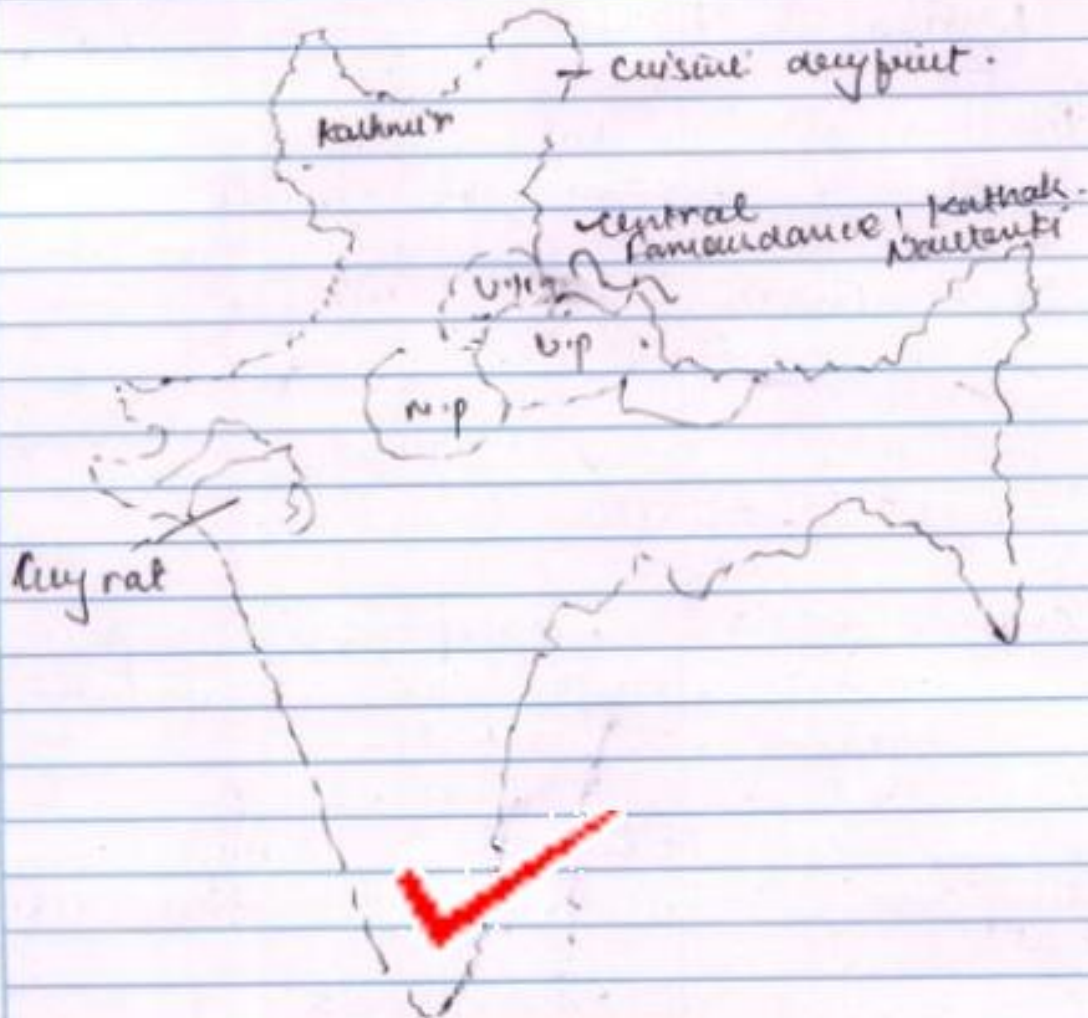 cuisine dryfruit.
Kashmir
central
famous dance! Kathak.
Nauttanki
U.K
U.P
M.P
Gujrat